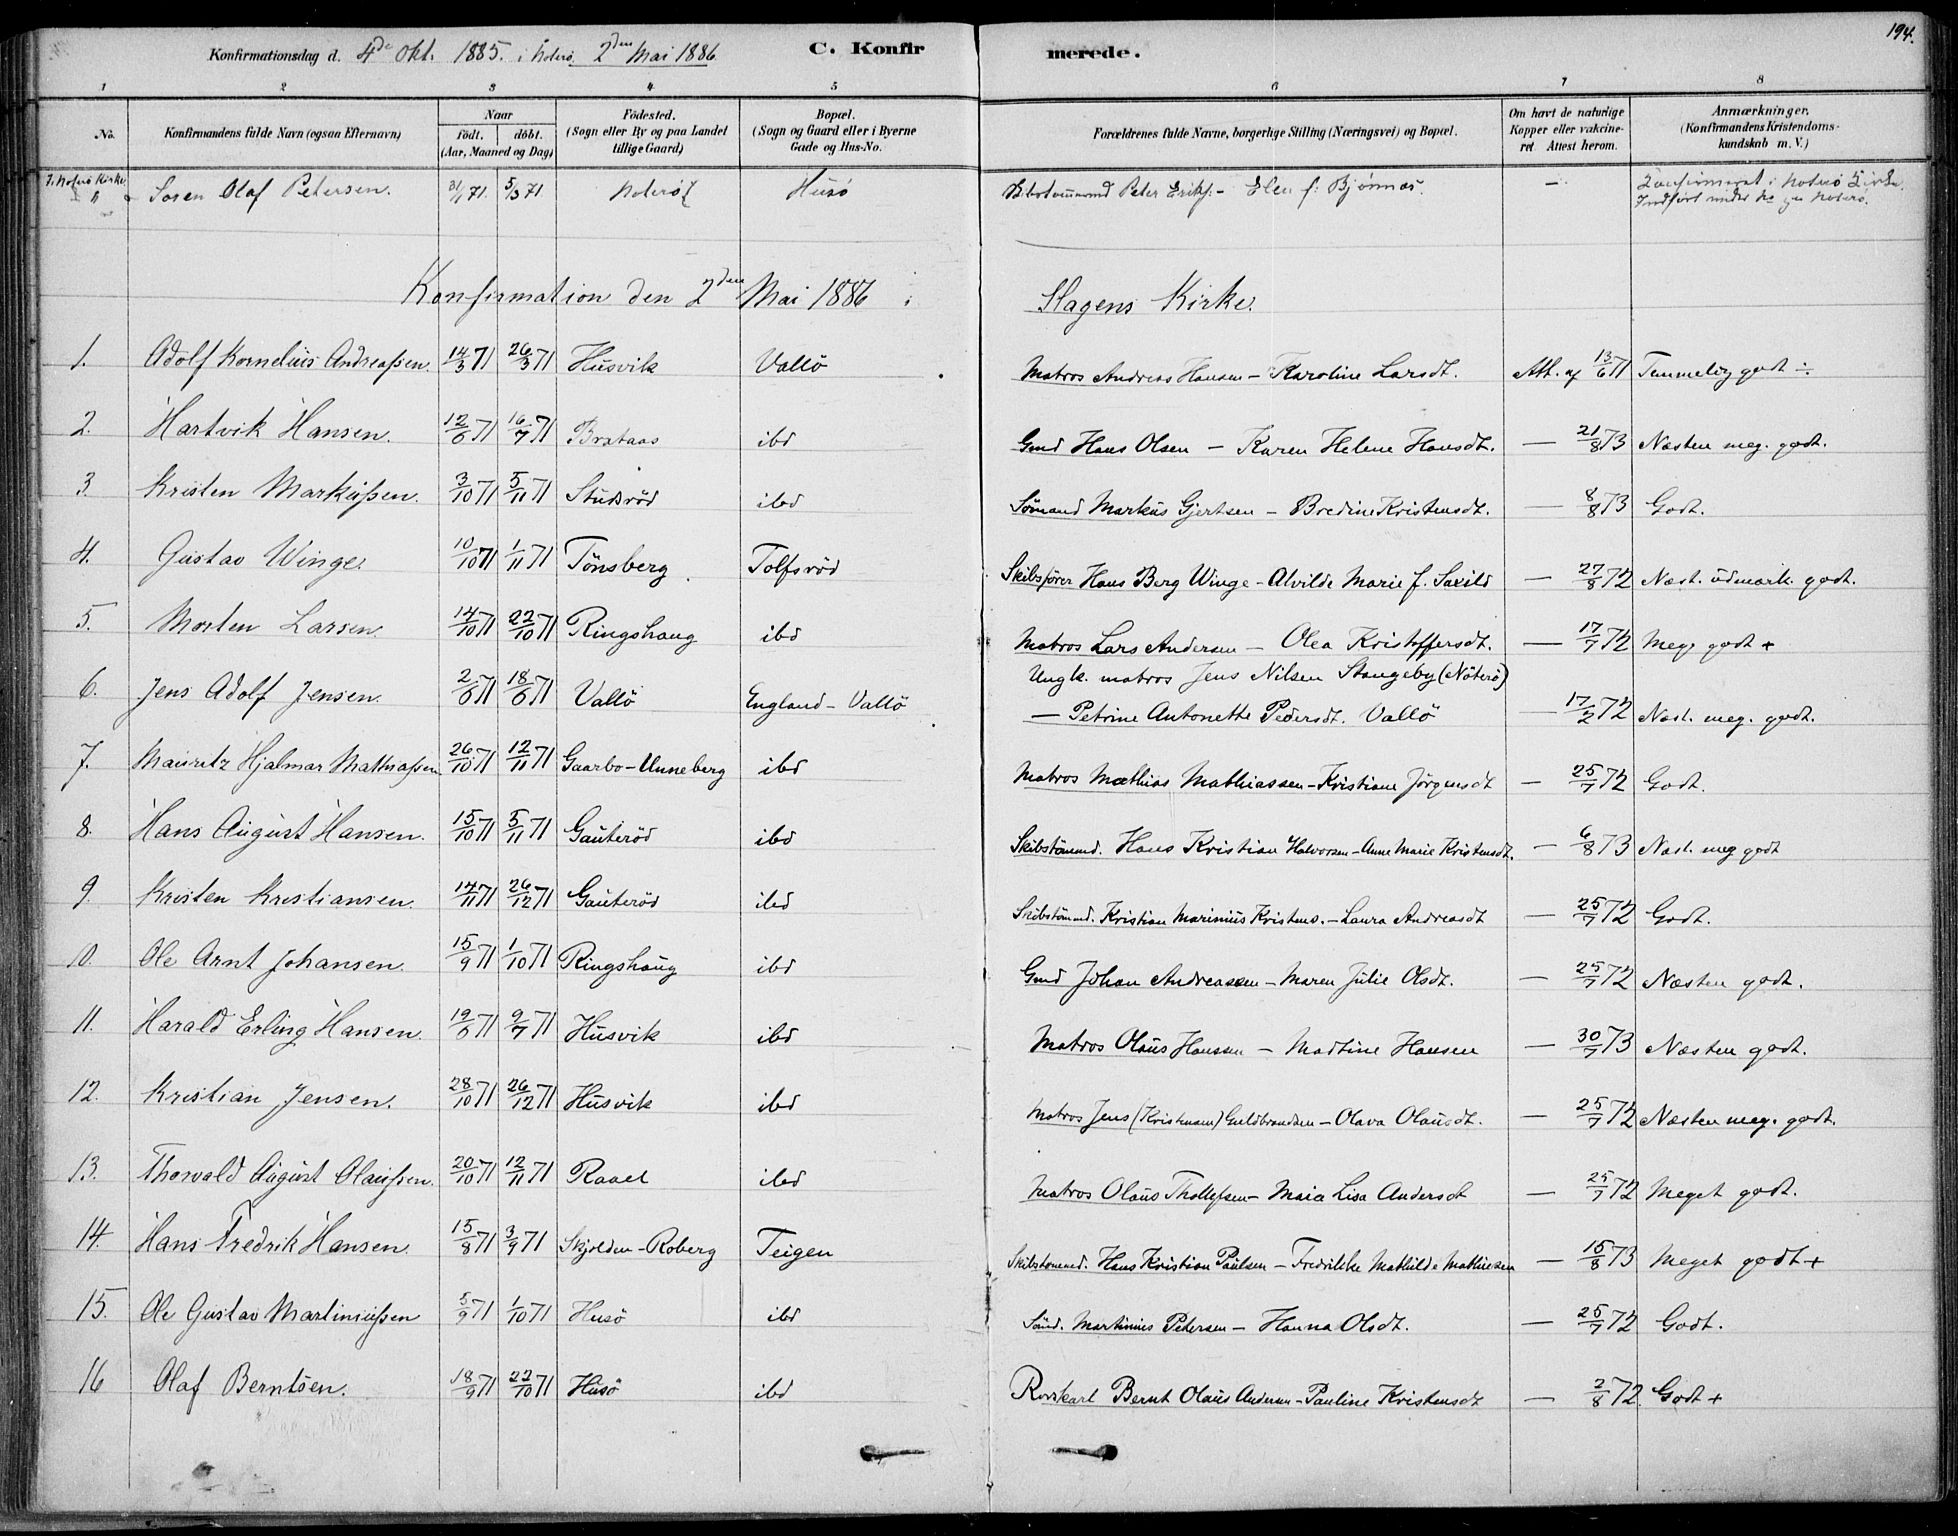 194.
Konfirmationsdag d. 4de Okt. 1885. i Noterö. 2den Mai 1886 C. Konfirmerede.
1 2 3 4 5 6 7 8
No. Konfirmandens fulde Navn (ogsaa Efternavn) Naar født. døbt. (Aar, Maaned og Dag) Fødested. (Sogn eller By og paa Landet tillige Gaard) Bopæl. (Sogn og Gaard eller i Byerne Gade og Hus-No. Forældrenes fulde Navne, borgerlige Stilling (Næringsvei) og Bopæl. Om havt de naturlige Kopper eller vakcineret. Attest herom. Anmærkninger. (Konfirmandens Kristendomskundskab m. V.)
I Noterö Kirke Soren Olaf Petersen. 31/1 71. 5/3 71 Noterö Husö Peter Eriks. – Elen f. Bjönnes. – Konfirmeret i Noterö Kirke. Indfört under No
Konfirmation den 2den Mai 1886 i Slagens Kirke.
1. Adolf Kornelius Andreassen. 14/3 71 26/3 71 Husvik Vallö Matros Andreas Hansen – Karoline Larsdt. Att. af 13/6 71 Temmelig godt ÷
2. Hartvik Hansen. 12/6 71 16/7 71 Brataas ibd Gmd Hans Olsen – Karen Helene Hansdt. – 21/8 73 Næsten meg. godt.
3. Kristen Markussen. 3/10 71 5/11 71 Stusröd ibd Sömand Markus Gjertsen – Bredine Kristensdt. – 8/8 73 Godt.
4. Gustav Winge 10/10 71 1/11 71 Tönsberg. Tolfsröd Skibsförer Hans Berg Winge – Alvilde Marie f. Saxild – 27/8 72 Næst. udmærk. godt.
5. Morten Larsen 14/10 71 22/10 71 Ringshaug ibd Matros Lars Andersen – Olea Kristoffersdt. – 17/7 72 Meg. godt +
6. Jens Adolf Jensen. 2/6 71 18/6 71 Vallö England – Vallö Ungk. matros Jens Nilsen Stangeby (Nöterö)
– Petrine Antonette Pedersdt. Vallö – 17/2 72 Næst. meg. godt.
7. Mauritz Hjalmar Mathiassen 26/10 71 12/11 71 Gaarbo-Unneberg ibd Matros Mathias Mathiassen – Kristiane Jörgensdt – 25/7 72 Godt.
8. Hans August Hansen. 15/10 71 5/11 71 Gauteröd ibd Skibstömmd. Hans Kristian Halvorsen – Anne Marie Kristensdt. – 6/8 73 Næst. meg godt
9. Kristen Kristiansen. 14/11 71 26/12 71 Gauteröd ibd Skibstömmd. Kristian Marinius Kristens. – Laura Andreasdt – 25/7 72 Godt.
10. Ole Arnt Johansen. 15/9 71 1/10 71 Ringshaug ibd Gmd Johan Andreassen – Maren Julie Olsdt. – 25/7 72 Næsten godt.
11. Harald Erling Hansen. 19/6 71 9/7 71 Husvik ibd Matros Olaus Hansen – Martine Hansen – 30/7 73 Næsten godt.
12. Kristian Jensen. 28/10 71 26/12 71 Husvik ibd Matros Jens (Kristensen) Guldbrandsen – Olava Olausdt. – 25/7 72 Næsten meg. godt.
13. Thorvald August Olaussen. 20/10 71 12/11 71 Rael ibd Matros Olaus Thollefsen – Maia Lisa Andersdt – 25/7 72 Meget godt.
14. Hans Fredrik Hansen. 15/8 71 3/9 71 Skjolden-Roberg Teigen Skibstömmd. Hans Kristian Paulsen – Fredrikke Mathilde Mathiesen – 15/8 73 Meget godt +
15. Ole Gustav Martiniussen 5/9 71 1/10 71 Husö ibd Sömd. Martinius Petersen – Hanna Olsdt. – 25/7 72 Godt.
16 Olaf Berntsen. 18/9 71 22/10 71 Husö ibd Rorskarl Bernt Olaus Andersen – Pauline Kristensdt – 2/8 72. Godt +